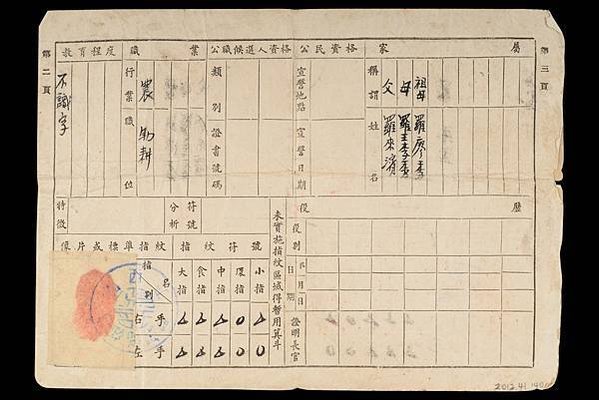 第三頁
家屬
稱謂 姓名
祖母 羅廖李
母 羅王李
父 羅來
公民資格
宣誓地點 宣誓日期
公職候選人資格
類別 證書號碼
職業
行業 職位
農 助耕
教育程度
不識字
第二頁
役歷
役別
年月日
日期
證明長官
未實施指紋區域得暫用箕斗
符號分析
特徵
指紋符號
指名 大指 食指 中指 環指 小指
別
右手 △ △ △ O △
左手 △ △ △ O O
像片或標準指紋
2012.41.140